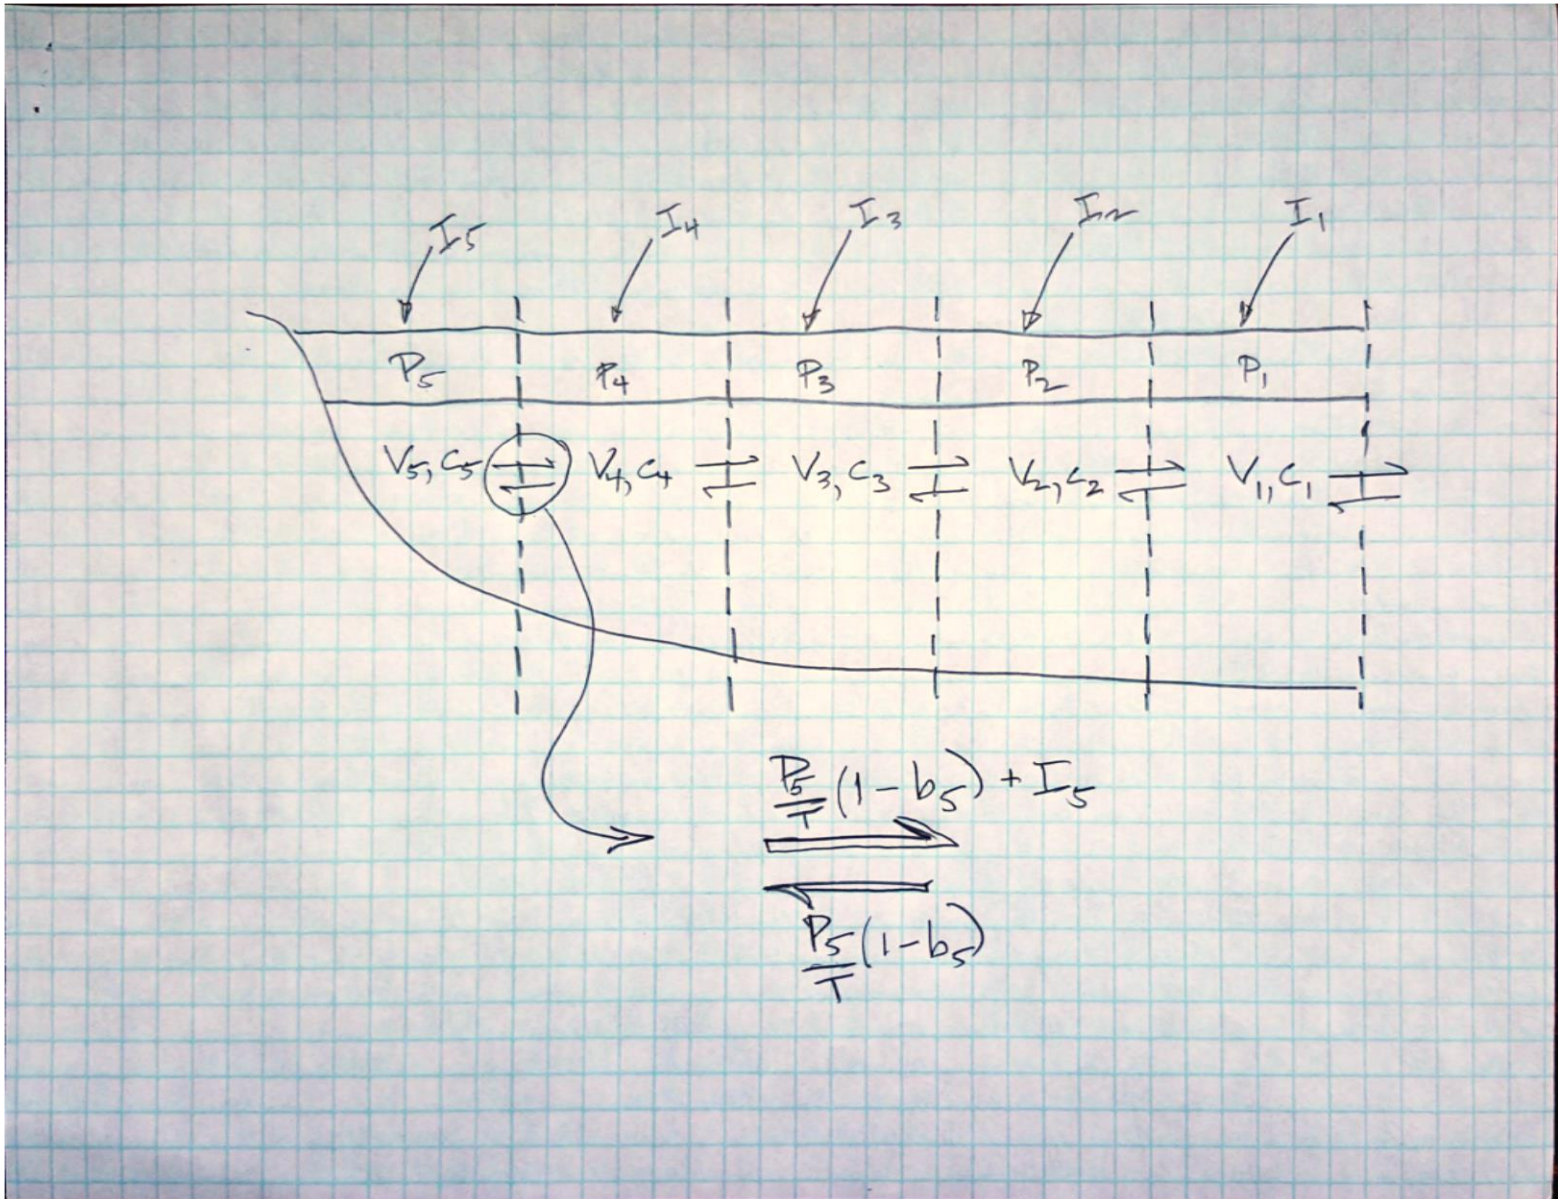 I5 I4 I3 I2 I1
P5 P4 P3 P2 P1
V5, C5 V4, C4 V3, C3 V2, C2 V1, C1
P5/T (1-b5) + I5
P5/T (1-b5)